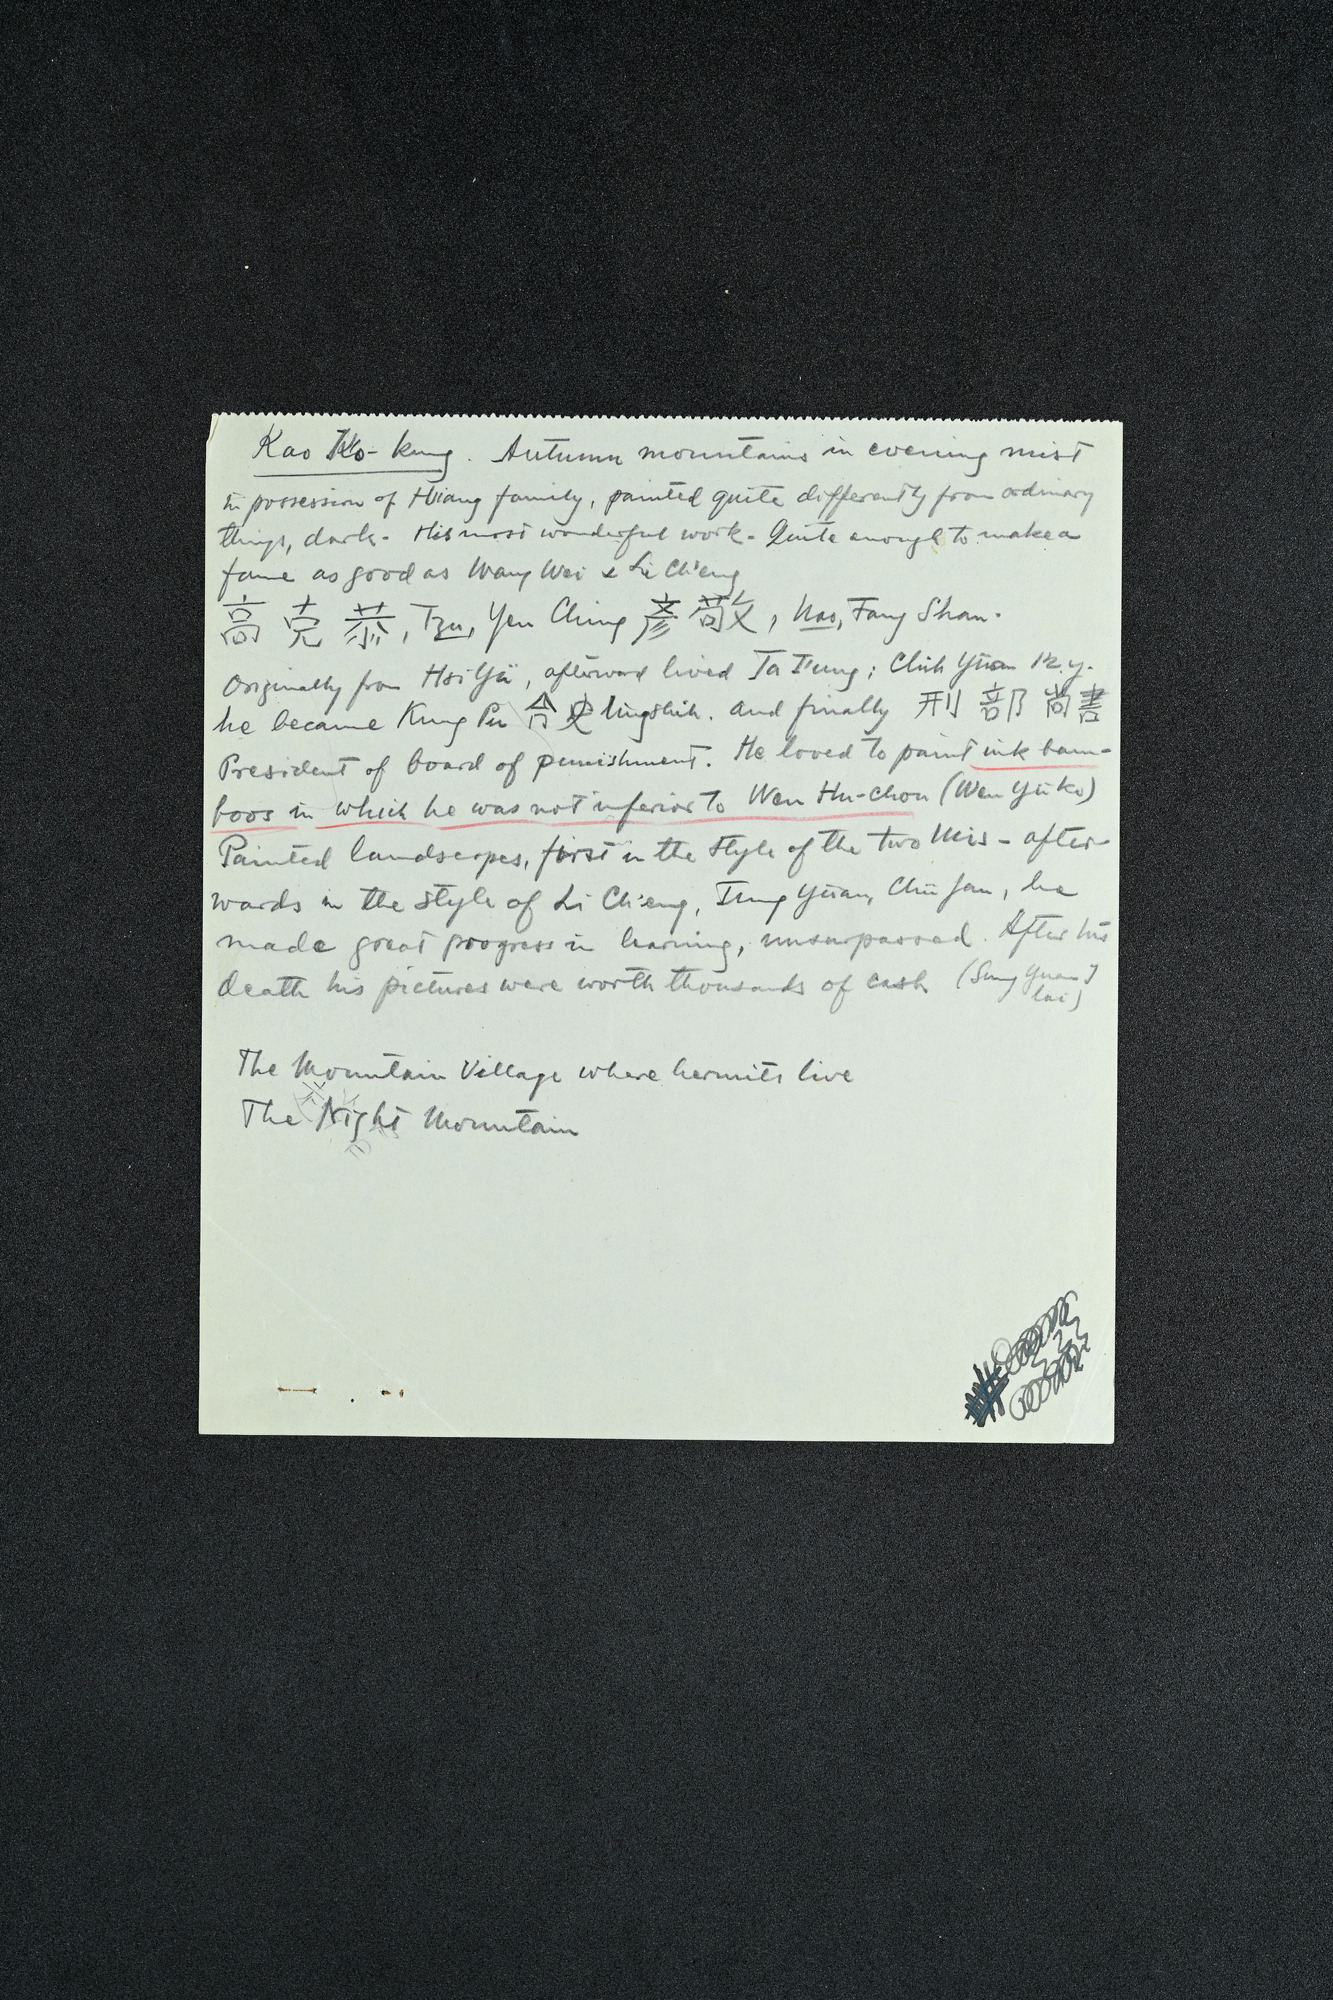 Kao Ko-kung. Autumn mountains in evening mist
in possession of Hsiang family, painted quite differently from ordinary
things, dark. His most wonderful work. Quite enough to make a
fame as good as Wang Wei & Li Ch'eng
高克恭, Tzu, Yen Ching 彥敬, Hao, Fang Shan.
Originally from Hsi Yü, afterward lived Ta T'ung; Chih Yüan 12 y.
he became Kung Pu 令史 lingshih. and finally 刑部尚書
President of board of punishment. He loved to paint ink bam-
boos in which he was not inferior to Wen Hu-chou (Wen Yü Ko)
Painted landscapes, first in the style of the two Mis - after-
wards in the style of Li Ch'eng, Tung Yüan, Chü Jan, he
made great progress in learning, unsurpassed. After his
death his pictures were worth thousands of cash (Sung Yuan I
lai)
The Mountain Village where hermits live
The Night Mountain